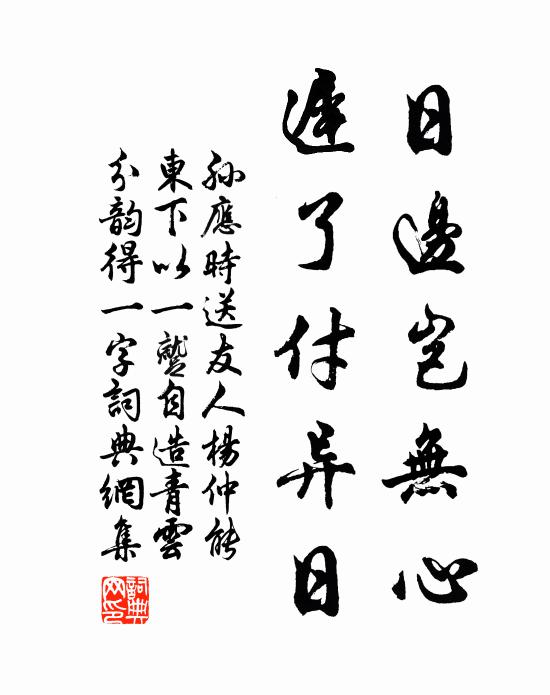 日邊豈無心
遲了付异日
孫應時送友人楊仲能
東下以一鶚自造青雲
分韵得一字詞典網集
詞典网印